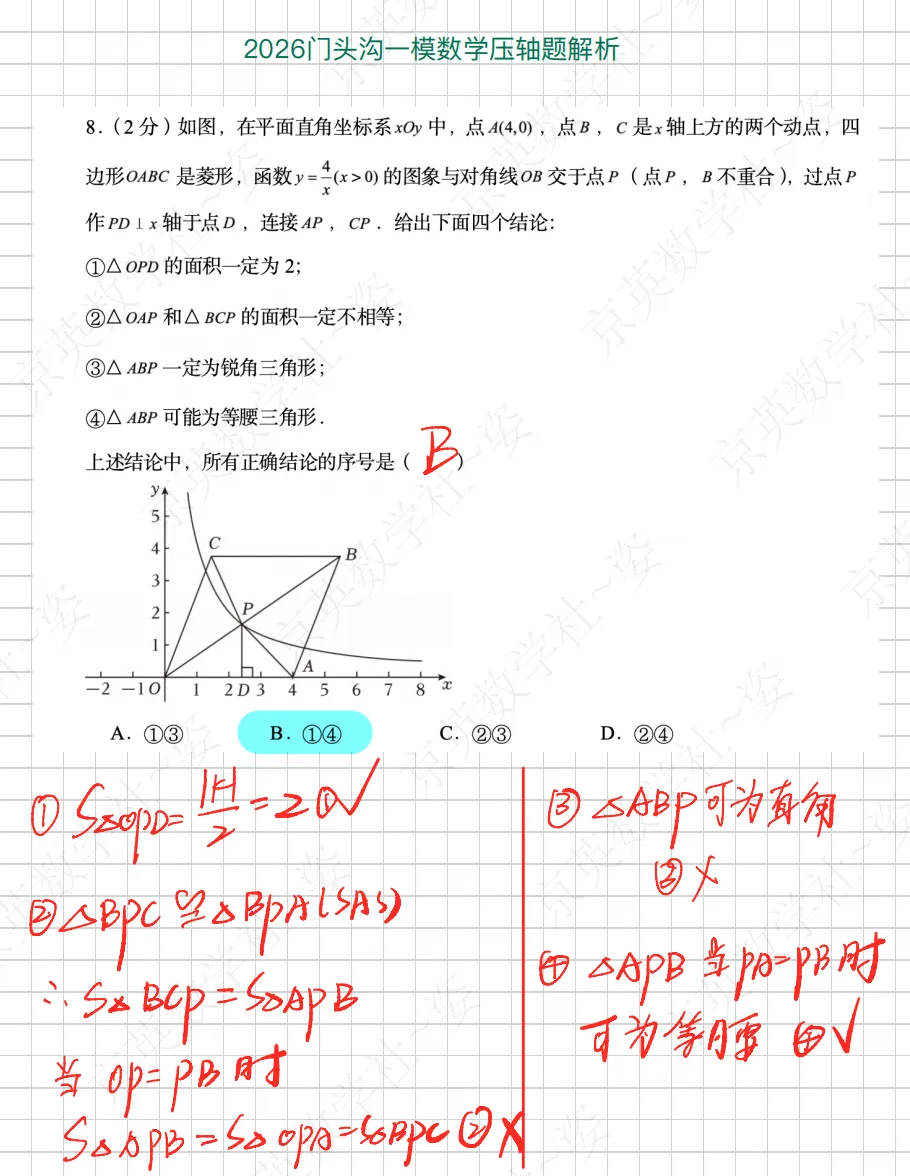 2026门头沟一模数学压轴题解析
8.（2 分）如图，在平面直角坐标系 xOy 中，点 A(4,0) ，点 B ，C 是 x 轴上方的两个动点，四
边形 OABC 是菱形，函数 y = 4/x (x > 0) 的图象与对角线 OB 交于点 P（ 点 P ，B 不重合 ），过点 P
作 PD ⊥ x 轴于点 D ，连接 AP ，CP ．给出下面四个结论：
①△ OPD 的面积一定为 2；
②△ OAP 和△ BCP 的面积一定不相等；
③△ ABP 一定为锐角三角形；
④△ ABP 可能为等腰三角形．
上述结论中，所有正确结论的序号是（ B ）
y
5
4
3
2
1
C
B
P
A
−2 −1 O 1 2 D 3 4 5 6 7 8 x
A．①③ B．①④ C．②③ D．②④
① S△OPD = |k|/2 = 2 ①√
② △BPC ≌ △BPA (SAS)
∴ S△BCP = S△APB
当 OP = PB 时
S△APB = S△OPA = S△BPC ②×
③ △ABP 可为直角
③ ×
④ △APB 当 PA = PB 时
可为等腰 ④√
京英数学社~姿